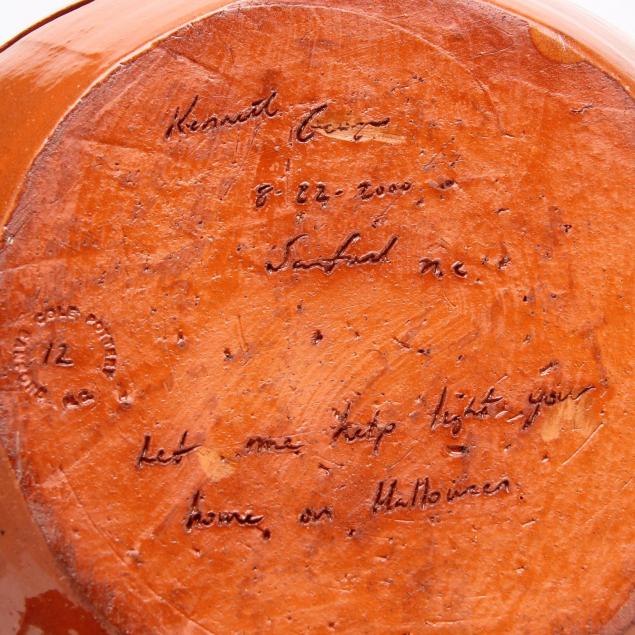 Kenneth George
8-22-2000
Sanford nc
COLE POTTERY
12
NC
Let me help light your
home on Halloween